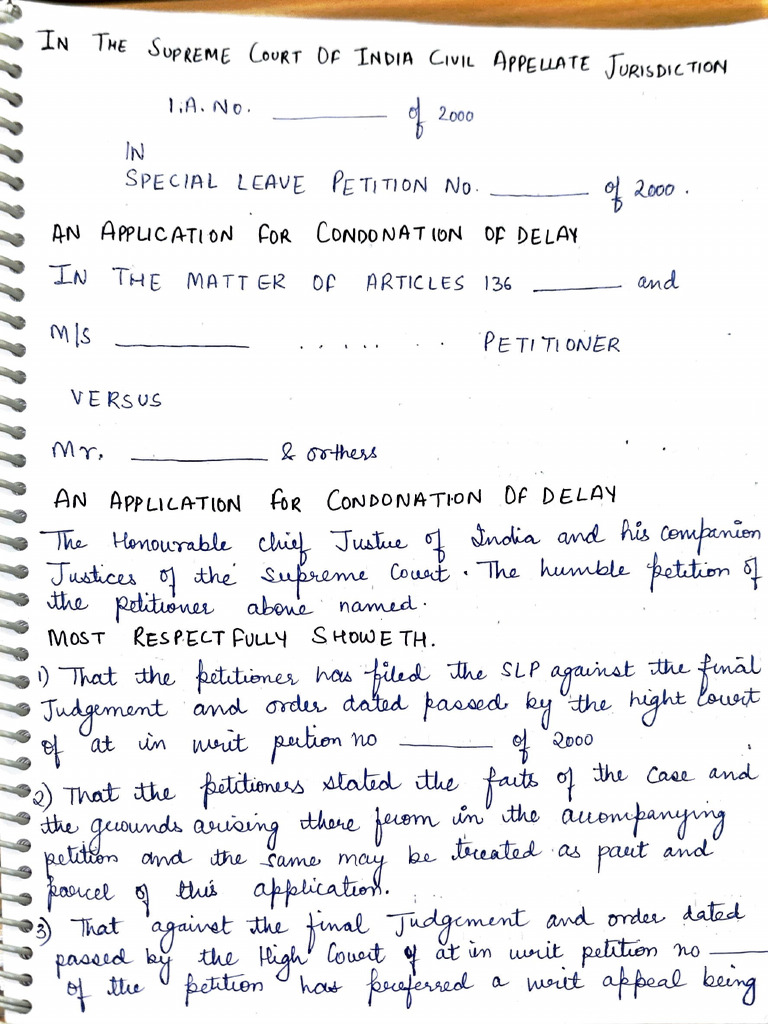 IN THE SUPREME COURT OF INDIA CIVIL APPELLATE JURISDICTION
I.A. No. ________ of 2000
IN
SPECIAL LEAVE PETITION No. ________ of 2000.
AN APPLICATION FOR CONDONATION OF DELAY
IN THE MATTER OF ARTICLES 136 ________ and
M/S ________ ..... . PETITIONER
VERSUS
Mr. ________ & orthers
AN APPLICATION FOR CONDONATION OF DELAY
The Honourable chief Justue of India and his companion
Justices of the Supreme Court. The humble petition of
the petitioner above named.
MOST RESPECTFULLY SHOWETH.
1) That the petitioner has filed the SLP against the final
Judgement and order dated passed by the hight court
of at in writ pertion no ________ of 2000
2) That the petitioners stated the facts of the case and
the grounds arising there from in the accompanying
petition and the same may be treated as part and
parcel of this application.
3) That against the final Judgement and order dated
passed by the High Court of at in writ petition no ____
of the petition has preferred a writ appeal being